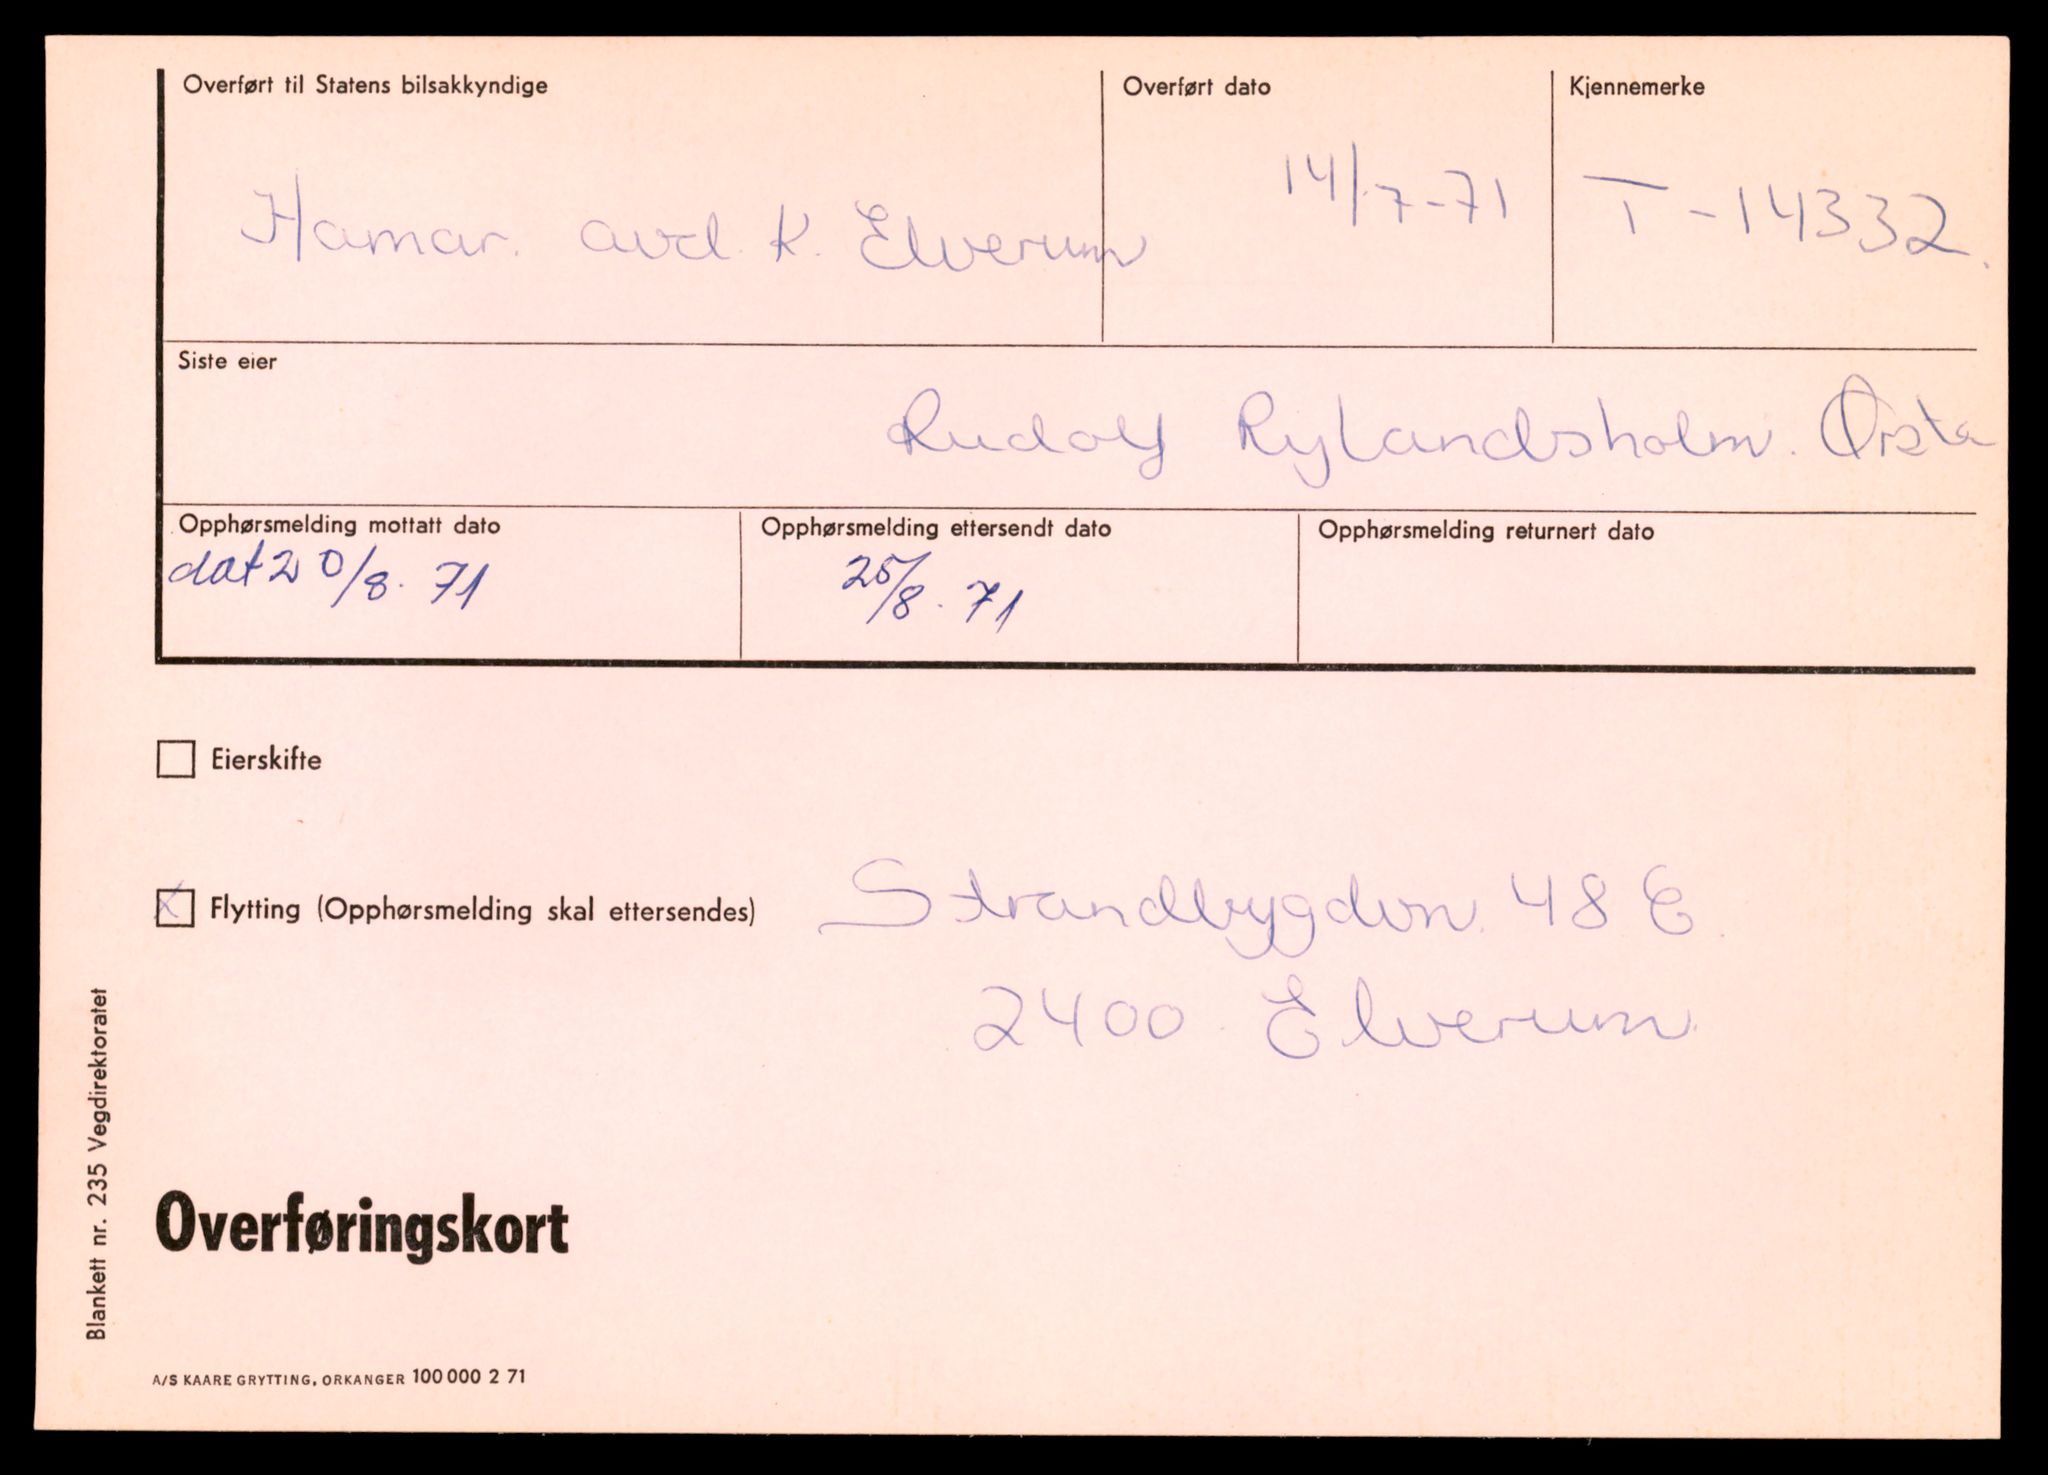 Overført til Statens bilsakkyndige
Overført dato
Kjennemerke
Hamar. avd. K. Elverum
14/7-71
T-14332.
Siste eier
Rudolf Rylandsholm. Ørsta
Opphørsmelding mottatt dato
Opphørsmelding ettersendt dato
Opphørsmelding returnert dato
dat 20/8. 71
25/8. 71
Eierskifte
x Flytting (Opphørsmelding skal ettersendes)
Strandbygdvn. 48 E.
2400 Elverum.
Overføringskort
Blankett nr. 235 Vegdirektoratet
A/S KAARE GRYTTING, ORKANGER 100 000 2 71